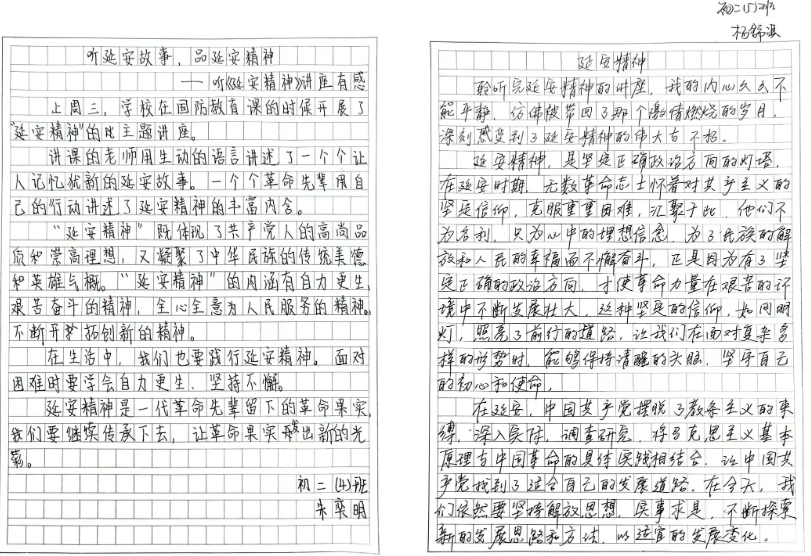 听延安故事，品延安精神
——听《延安精神》讲座有感
上周三，学校在国防教育课的时候开展了
"延安精神"的主题讲座。
讲课的老师用生动的语言讲述了一个个让
人记忆犹新的延安故事。一个个革命先辈用自
己的行动讲述了延安精神的丰富内含。
"延安精神"既体现了共产党人的高尚品
质和崇高理想，又凝聚了中华民族的传统美德
和英雄气概。"延安精神"的内涵有自力更生、
艰苦奋斗的精神，全心全意为人民服务的精神。
不断开拓创新的精神。
在生活中，我们也要践行延安精神。面对
困难时要学会自力更生、坚持不懈。
延安精神是一代革命先辈留下的革命果实，
我们要继续传承下去，让革命果实发出新的光
。
初二(4)班
朱奕明
初二(5)班
杨锦淇
延安精神
聆听完延安精神的讲座，我的内心久久不
能平静，仿佛被带回了那个激情燃烧的岁月，
深刻感受到了延安精神的伟大与不朽。
延安精神，是坚定正确政治方向的灯塔。
在延安时期，无数革命志士怀着对共产主义的
坚定信仰，克服重重困难，汇聚于此，他们不
为名利，只为心中的理想信念，为了民族的解
放和人民的幸福而不懈奋斗。正是因为有了坚
定正确的政治方向，才使革命力量在艰苦的环
境中不断发展壮大，这种坚定的信仰，如同明
灯，照亮了前行的道路，让我们在面对复杂多
样的形势时，能够保持清醒的头脑，坚守自己
的初心和使命。
在延安，中国共产党摆脱了教条主义的束
缚，深入实际，调查研究，将马克思主义基本
原理与中国革命的具体实践相结合，让中国共
产党找到了适合自己的发展道路。在今天，我
们依然要坚持解放思想，实事求是，不断探索
新的发展思路和方法，以适宜的发展变化。